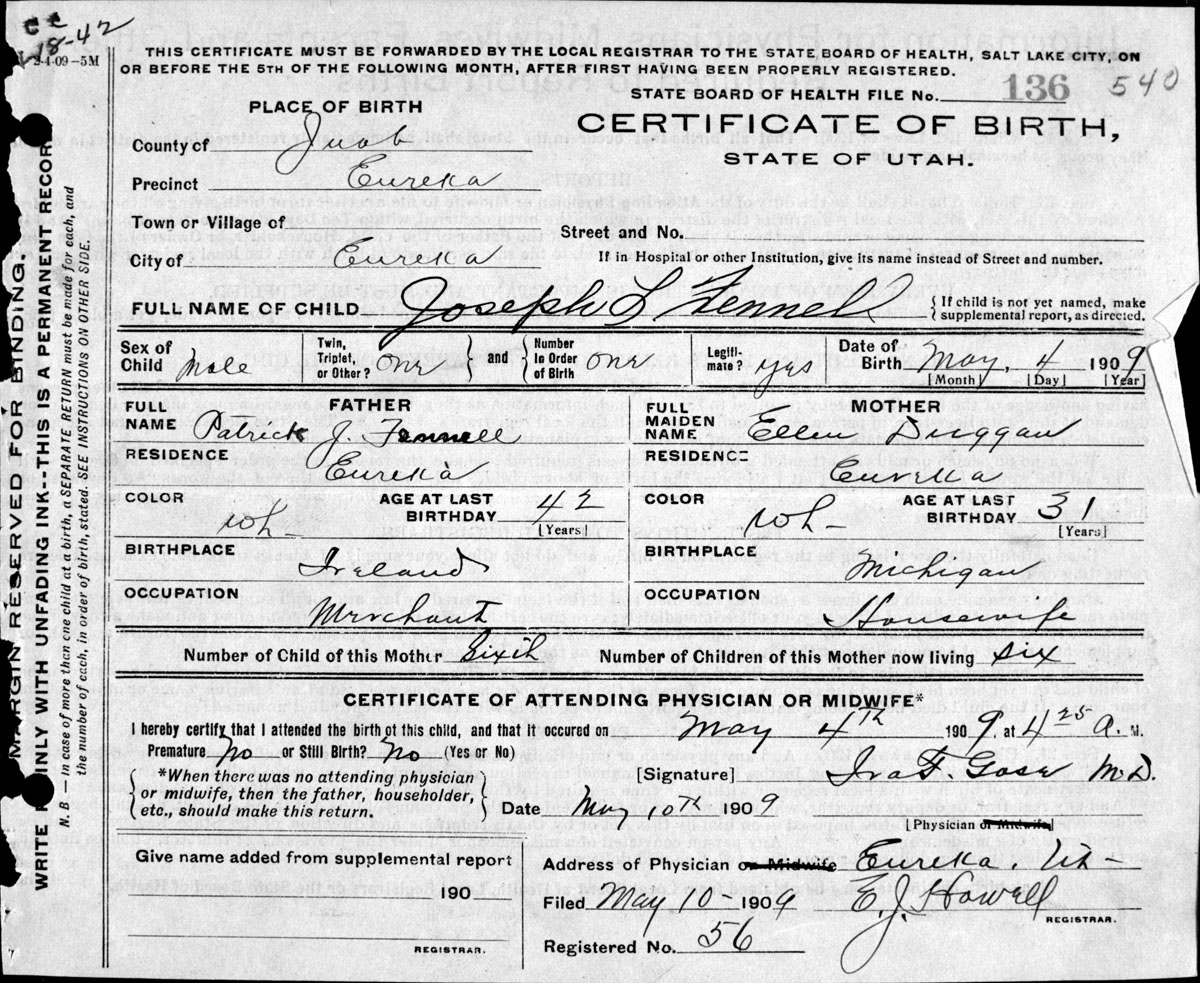 c c
18-42
2-4-09-5M
THIS CERTIFICATE MUST BE FORWARDED BY THE LOCAL REGISTRAR TO THE STATE BOARD OF HEALTH, SALT LAKE CITY, ON
OR BEFORE THE 5TH OF THE FOLLOWING MONTH, AFTER FIRST HAVING BEEN PROPERLY REGISTERED.
STATE BOARD OF HEALTH FILE No. 136 540
PLACE OF BIRTH
CERTIFICATE OF BIRTH,
STATE OF UTAH.
County of Juab
Precinct Eureka
Town or Village of
Street and No.
City of Eureka
If in Hospital or other Institution, give its name instead of Street and number.
FULL NAME OF CHILD Joseph L Fennell { If child is not yet named, make supplemental report, as directed.
Sex of Child Male Twin, Triplet or Other? One } and { Number in Order of Birth one Legiti-mate? yes Date of Birth May, 4 1909
[Month] [Day] [Year]
FATHER
FULL NAME Patrick J. Fennell
RESIDENCE Eureka
COLOR wh- AGE AT LAST BIRTHDAY 42 [Years]
BIRTHPLACE Ireland
OCCUPATION Merchant
MOTHER
FULL MAIDEN NAME Ellen Duggan
RESIDENCE Eureka
COLOR wh- AGE AT LAST BIRTHDAY 31 [Years]
BIRTHPLACE Michigan
OCCUPATION Housewife
Number of Child of this Mother Sixth Number of Children of this Mother now living six
CERTIFICATE OF ATTENDING PHYSICIAN OR MIDWIFE*
I hereby certify that I attended the birth of this child, and that it occured on May 4th 1909, at 4 25 a. M.
Premature No or Still Birth? No (Yes or No)
{ *When there was no attending physician
or midwife, then the father, householder,
etc., should make this return. }
[Signature] Ira F. Gose M.D.
Date May 10th 1909
[Physician or Midwife]
Give name added from supplemental report
190
REGISTRAR.
Address of Physician or Midwife Eureka. Ut-
Filed May 10- 1909 E.J. Howell
REGISTRAR.
Registered No. 56
MARGIN RESERVED FOR BINDING.
WRITE ONLY WITH UNFADING INK-THIS IS A PERMANENT RECORD
N. B. — In case of more than one child at a birth, a SEPARATE RETURN must be made for each, and
the number of each, in order of birth, stated. SEE INSTRUCTIONS ON OTHER SIDE.